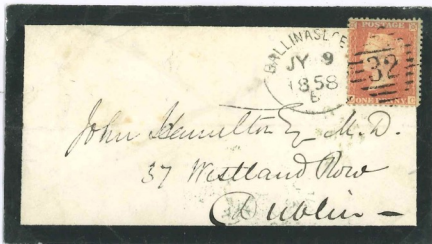 BALLINASLOE
JY 9
1858
POSTAGE
32
John Hamilton Esq M.D.
37 Westland Row
Dublin